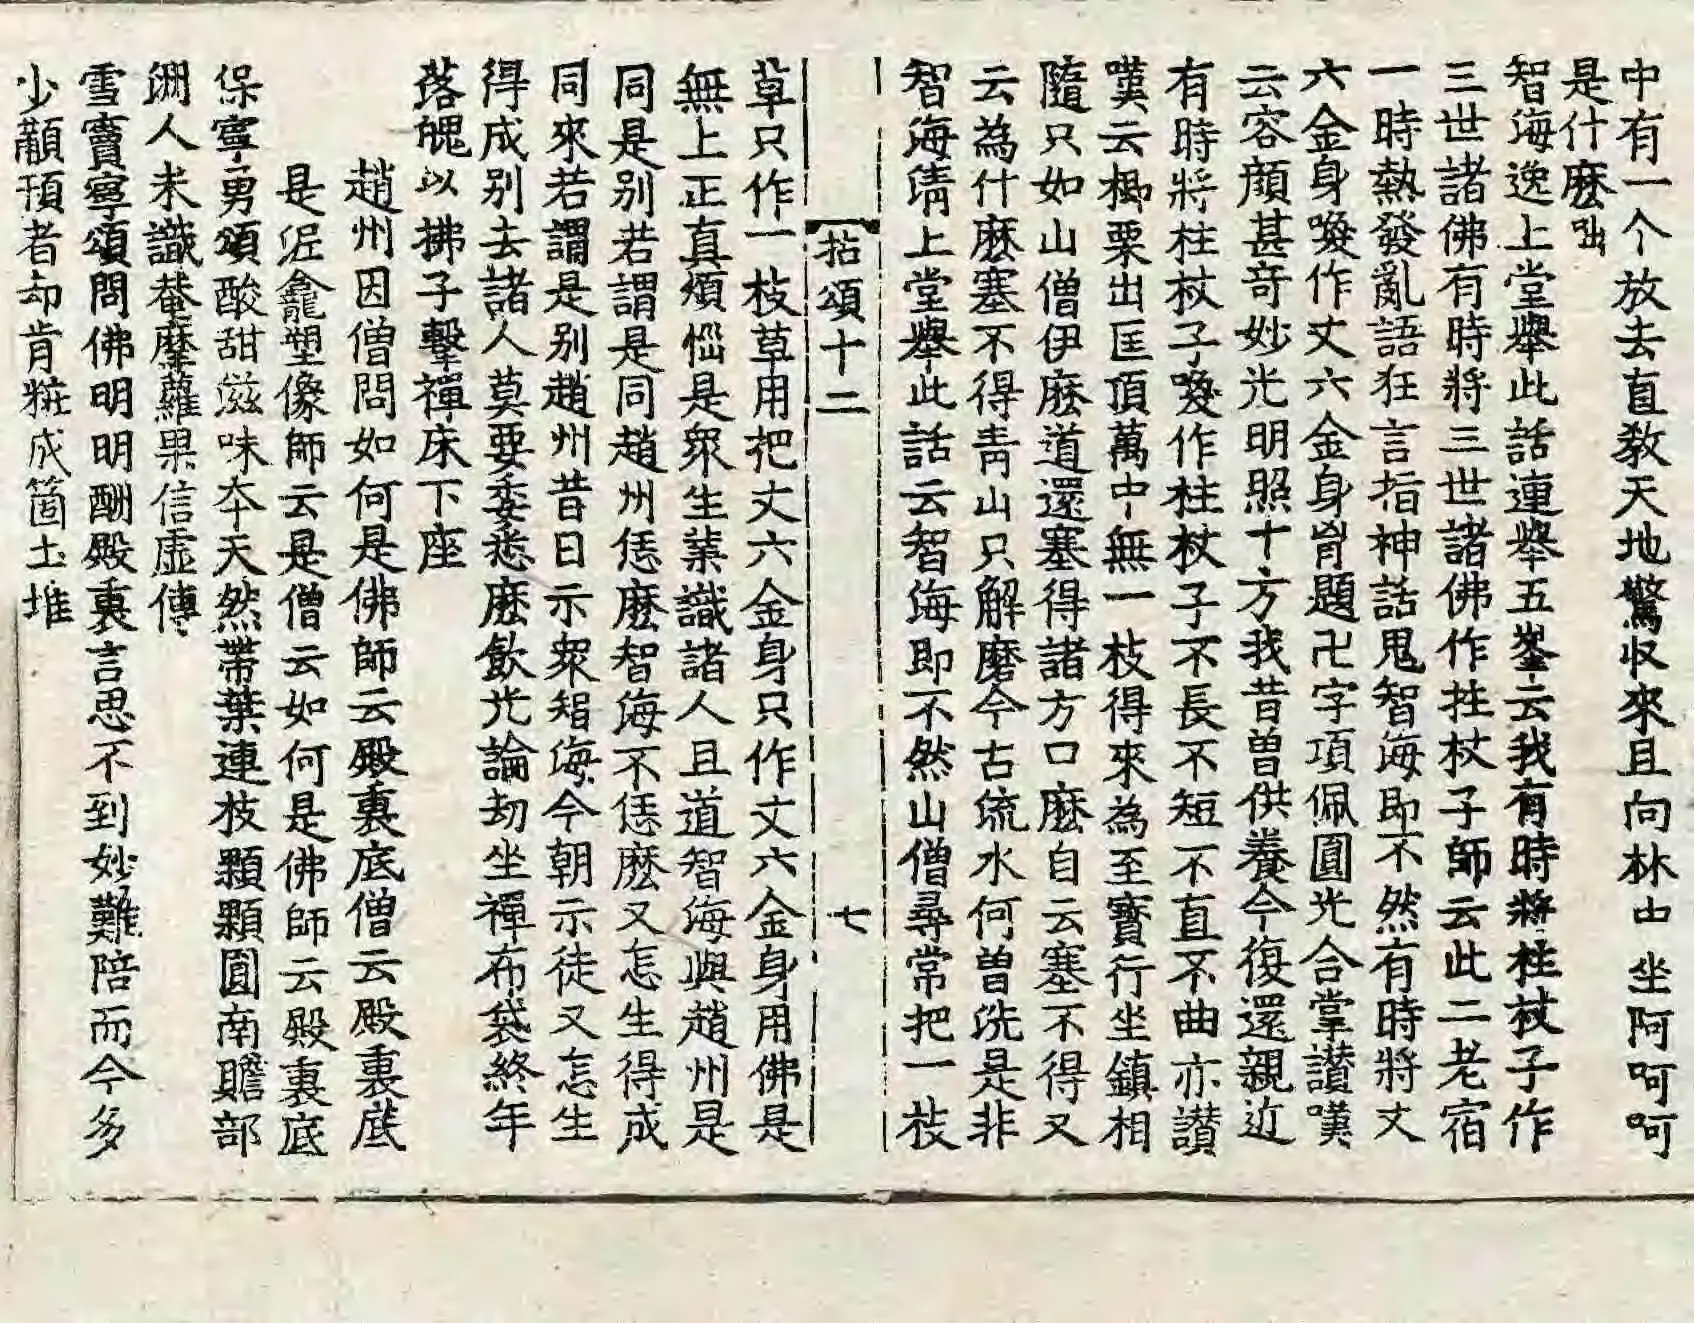 中有一个放去直敎天地驚収來且向林中坐阿呵呵
是什麽咄
智海逸上堂擧此話連擧五峯云我有時將柱杖子作
三世諸佛有時將三世諸佛作拄杖子師云此二老宿
一時熱發亂語狂言指神話鬼智海即不然有時將丈
六金身喚作丈六金身胷題卍字項佩圓光合掌讃嘆
云容顔甚奇妙光明照十方我昔曾供養今復還親近
有時將柱杖子喚作柱杖子不長不短不直不曲亦讃
嘆云楖栗出匡頂萬中無一枝得來為至寳行坐鎮相
隨只如山僧伊麽道還塞得諸方口麽自云塞不得又
云為什麽塞不得靑山只解磨今古流水何曾洗是非
智海淸上堂擧此話云智海即不然山僧尋常把一枝
拈頌十二 七
草只作一枝草用把丈六金身只作丈六金身用佛是
無上正真煩惱是衆生業識諸人且道智海與趙州是
同是别若謂是同趙州恁麽智海不恁麽又怎生得成
同來若謂是别趙州昔日示衆智海今朝示徒又怎生
得成别去諸人莫要委悉麽飲光論刼坐禪布袋終年
落魄以拂子擊禪床下座
趙州因僧問如何是佛師云殿裏底僧云殿裏底
是泥龕塑像師云是僧云如何是佛師云殿裏底
保寧勇頌酸甜滋味夲天然帶葉連枝顆顆圓南贍部
洲人未識菴摩蘿果信虛傳
雪竇寧頌問佛明明明酬殿裏言思不到妙難陪而今多
少顢頇者却肯粧成箇土堆